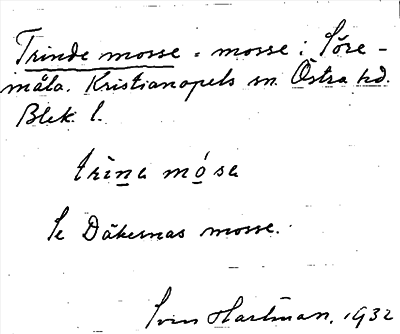 Trinde mosse. mosse i Söre-
måla. Kristianopels sn. Östra hd.
Blek. l.
trìna mósa
Se Dåkernas mosse.
Sven Hartman, 1932